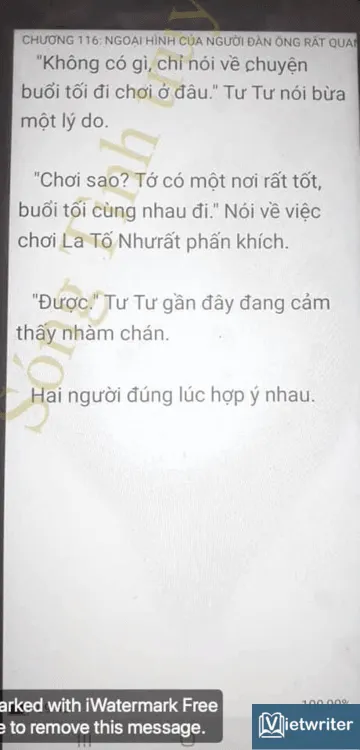 CHƯƠNG 116: NGOẠI HÌNH CỦA NGƯỜI ĐÀN ÔNG RẤT QUAN
"Không có gì, chỉ nói về chuyện
buổi tối đi chơi ở đâu." Tư Tư nói bừa
một lý do.
"Chơi sao? Tớ có một nơi rất tốt,
buổi tối cùng nhau đi." Nói về việc
chơi La Tố Nhưrất phấn khích.
"Được." Tư Tư gần đây đang cảm
thấy nhàm chán.
Hai người đúng lúc hợp ý nhau.
Sóng Tình
arked with iWatermark Free
e to remove this message.
Vietwriter